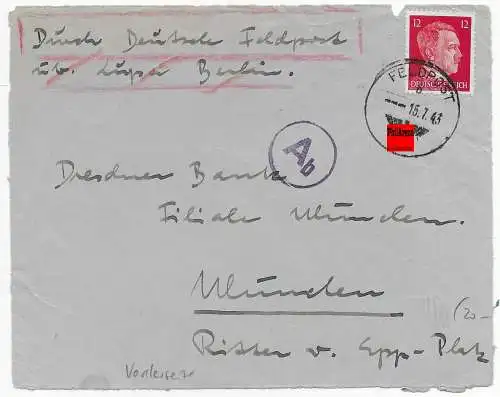 Durch Deutsche Feldpost
üb. Luspa Berlin.
12 12
DEUTSCHES REICH
FELDPOST
15.7.43
Ab
Dresdner Bank
Filiale München.
München
Ritter v. Epp-Platz
Vorderseite